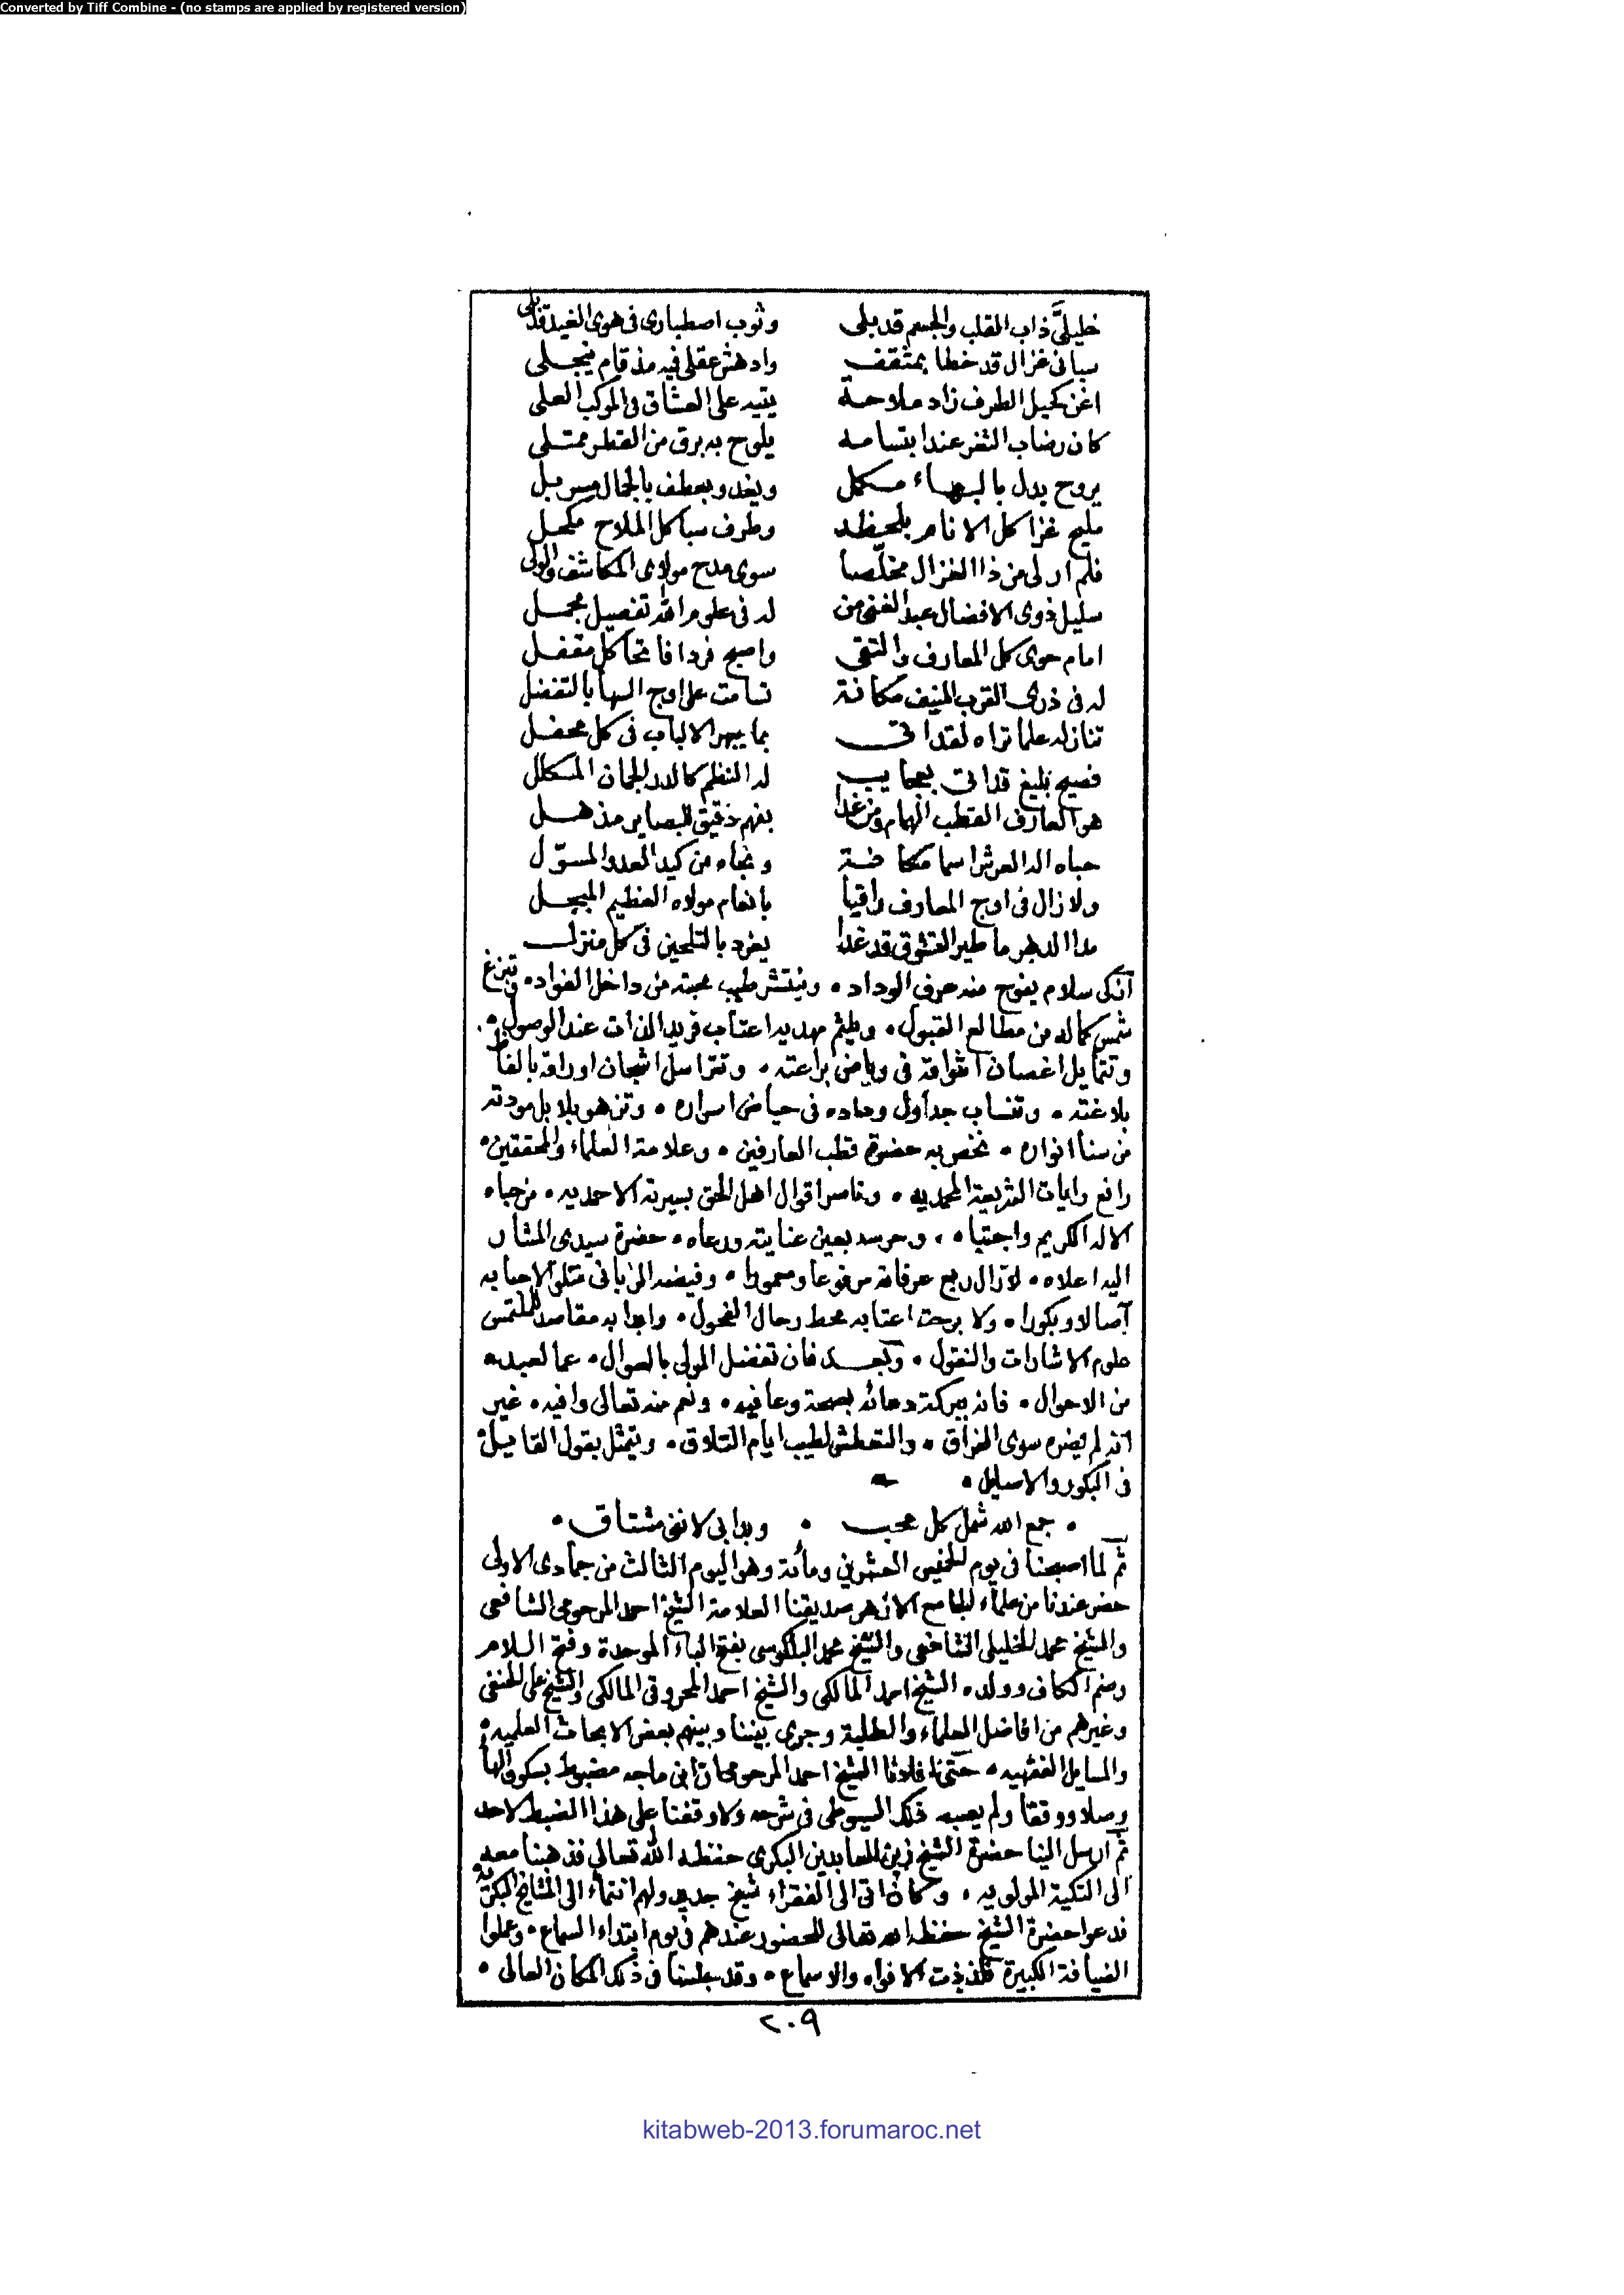 Converted by Tiff Combine - (no stamps are applied by registered version)
خليليَّ ذاب القلب والجسم قد بلى وثوب اصطبارى فى هوى الغيد قد بلى
سبانى غزال قد خطا بمثقف وادهش عقلى فيه مذ قام ينجلى
اغن كحيل الطرف زاد ملاحة يتيه على العشاق فى الموكب العلى
كان رضاب الثغر عند ابتسامه يلوح به برق من القطر ممتلى
يروح بدل بالبهاء مكمل ويغدو بعطف بالجمال مسربل
مليح غزا كل الانام بلحظه وطرف سبا كل الملاح مكحل
فلم ار لى من ذا الغزال مخلّصا سوى مدح مولاى المكاشف والولى
سليل ذوى الافضال عبد الغنى من له فى علوم الله تفصيل مجمل
امام حوى كل المعارف والتقى واصبح فردا فاتحا كل مقفل
له فى ذرى القرب المنيف مكانة تسامت على اوج السها بالتفضل
تنازله علما تراه لقد اتى بما يبهر الالباب فى كل محفل
فصيح بليغ قد اتى بعجايب له النظم كالدر الجمان المكلل
هو العارف القطب الهمام ومن غدا بفهم دقيق للبصاير مذهل
حباه اله العرش اسما مكانة ونجاه من كيد العدو المسوّل
ولا زال فى اوج المعارف راقيا بانعام مولاه العظيم المبجل
مدا الدهر ما طير التشوق قد غدا يغرد بالتلحين فى كل منزل
ازكى سلام يفوح منه عرف الوداد • وينتشر طيب محبته من داخل الفواد • وتبزغ
شمس كماله من مطالع القبول • ويلثم مهديه اعتاب فريد الذات عند الوصول •
وتتمايل اغصان اشواقه فى رياض براعته • وتتراسل اشجان اوراقه بالفاظ
بلاغته • وتنساب جداول وداده فى حياض اسراره • وتزهو بلابل مودته
من سنا انواره • نخص به حضرة قطب العارفين • وعلامة العلماء والمحققين •
رافع رايات الشريعة المحمديه • وناصر اقوال اهل الحق بسيرته الاحمديه • من حباه
الاله الكريم واجتباه • وحرسه بعين عنايته ورعاه • حضرة سيدى المشار
اليه اعلاه • لازال ربع عرفانه مرفوعا ومعمورا • وفيضه الربانى متلو لاحبابه
آصالا وبكورا • ولا برحت اعتابه محط رحال الفحول • وابوابه مقاصد لملتمس
علوم الاشارات والنقول • وبعد فان تفضل المولى بالسوال • عما لعبده
من الاحوال • فانه ببركة دعائه بصحة وعافيه • ونعم منه تعالى وافيه • غير
انه لم يضره سوى الفراق • والتعطش لطيب ايام التلاق • ويتمثل بقول القايل
فى البكور والاصايل •
• جمع الله شمل كل محب • وبدا بى لاننى مشتاق •
ثم لما اصبحنا فى يوم الخميس العشرين ومائة وهو اليوم الثالث من جمادى الاولى
حضر عندنا من علماء الجامع الازهر صديقنا العلامة الشيخ احمد المرحومى الشافعى
والشيخ محمد الخليلى الشافعى والشيخ محمد البلكوسى بفتح الباء الموحدة وفتح اللام
وضم الكاف وولده الشيخ احمد المالكى والشيخ احمد المحروقى المالكى والشيخ على الحنفى
وغيرهم من افاضل العلماء والطلبة وجرى بيننا وبينهم بعض الابحاث العلميه •
والمسايل الفقهيه • حتى افادنا الشيخ احمد المرحومى ان ابن ماجه مضبوط بسكون الها
وصلا ووقفا ولم يعبه ذلك السيوطى فى شرحه ولا وقفنا على هذا الضبط لاحد
ثم ارسل الينا حضرة الشيخ زين العابدين البكرى حفظه الله تعالى فذهبنا معه
الى التكية المولويه • وكان اتى الى الفقراء شيخ جديد ولهم انتماء الى المشايخ البكريه
فدعوا حضرة الشيخ حفظه الله تعالى للحضور عندهم فى يوم ابتداء السماع • وعملوا
الضيافة الكبيرة فلذذت الافواه والاسماع • وقد جلسنا فى ذلك المكان العالى •
٢٠٩
kitabweb-2013.forumaroc.net